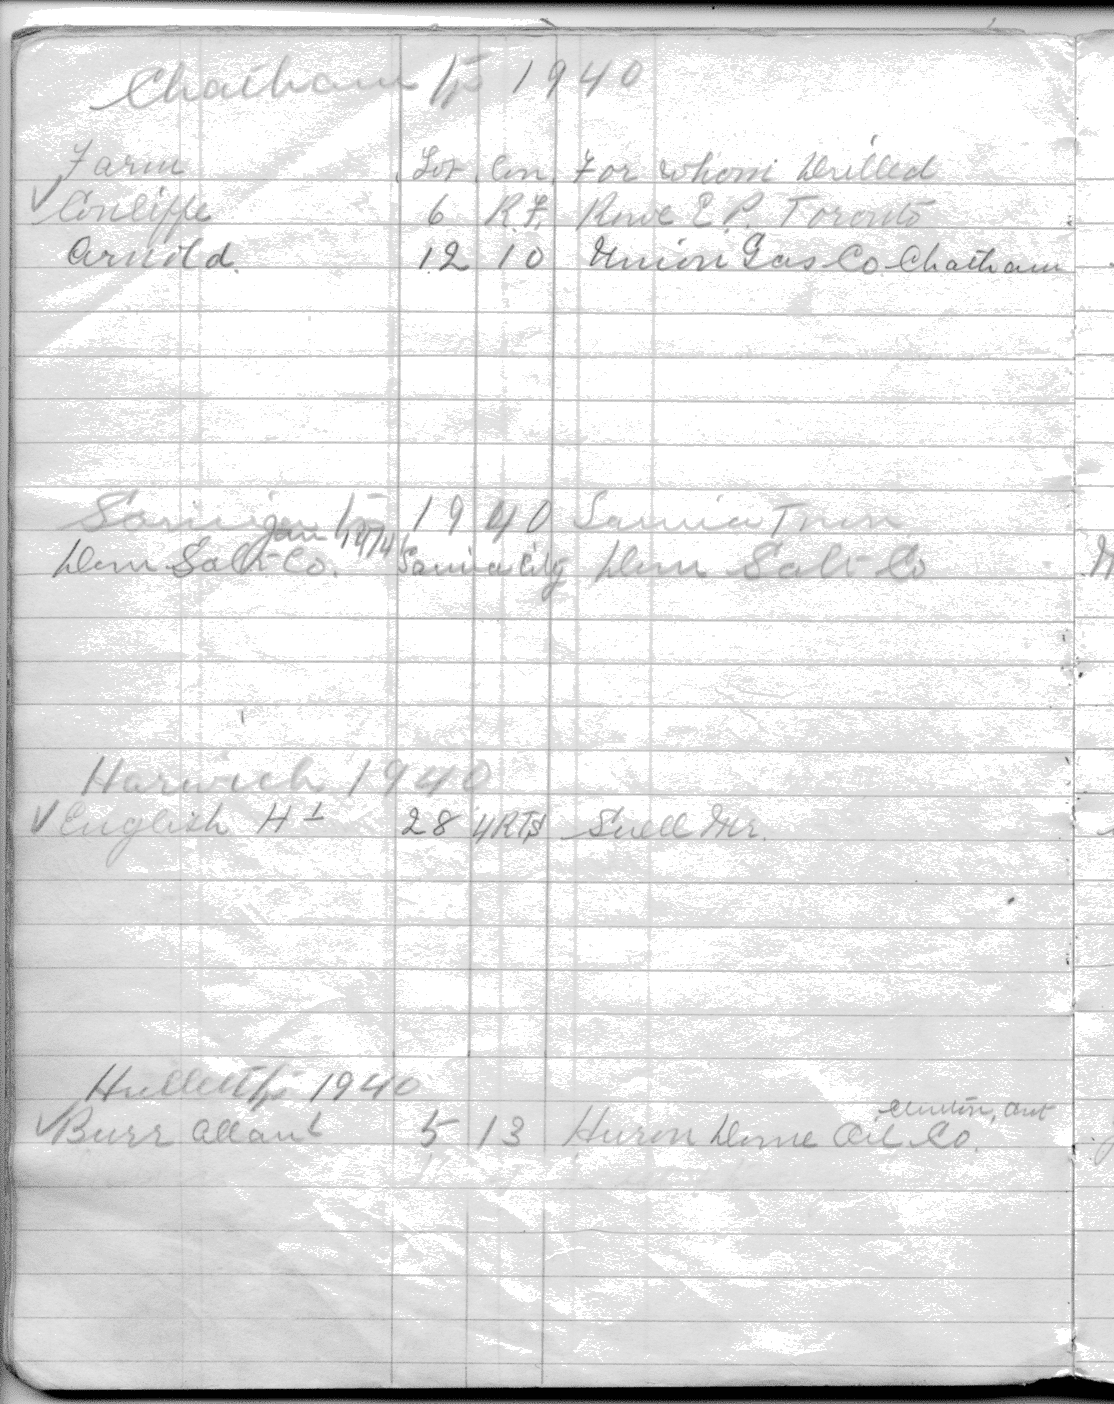 Chatham Tp 1940
Farm Lot Con For whom Drilled
✓ Concliffe 6 R.F. Rowe E.P. Toronto
Arnold. 12 10 Union Gas Co Chatham
Sarnia Tp 1940 Sarnia Town
Jan 1974
Dom Salt Co. Sarnia City Dom Salt Co
Harwich 1940
✓ English H 1 28 4RTS Snell Mr.
Hullett Tp 1940
Clinton, Ont
✓ Burr Allan 5 13 Huron Dome Oil Co.